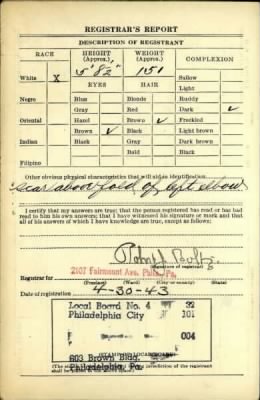 REGISTRAR'S REPORT
DESCRIPTION OF REGISTRANT
RACE HEIGHT (Approx.) WEIGHT (Approx.) COMPLEXION
5' 8½" 151
White X EYES HAIR Sallow
Light
Negro Blue Blonde Ruddy
Gray Red Dark ✓
Oriental Hazel Brown ✓ Freckled
Brown ✓ Black Light brown
Indian Black Gray Dark brown
Bald Black
Filipino
Other obvious physical characteristics that will aid in identification
Scar above fold of left elbow
I certify that my answers are true; that the person registered has read or has had
read to him his own answers; that I have witnessed his signature or mark and that
all of his answers of which I have knowledge are true, except as follows:
(Signature of registrar)
Registrar for 2107 Fairmount Ave. Phila., Pa.
(Precinct) (Ward) (City or county) (State)
Date of registration 4-30-43
Local Board No. 4 32
Philadelphia City 101
004
603 Brown Bldg.
Philadelphia, Pa.
(STAMP OF LOCAL BOARD)